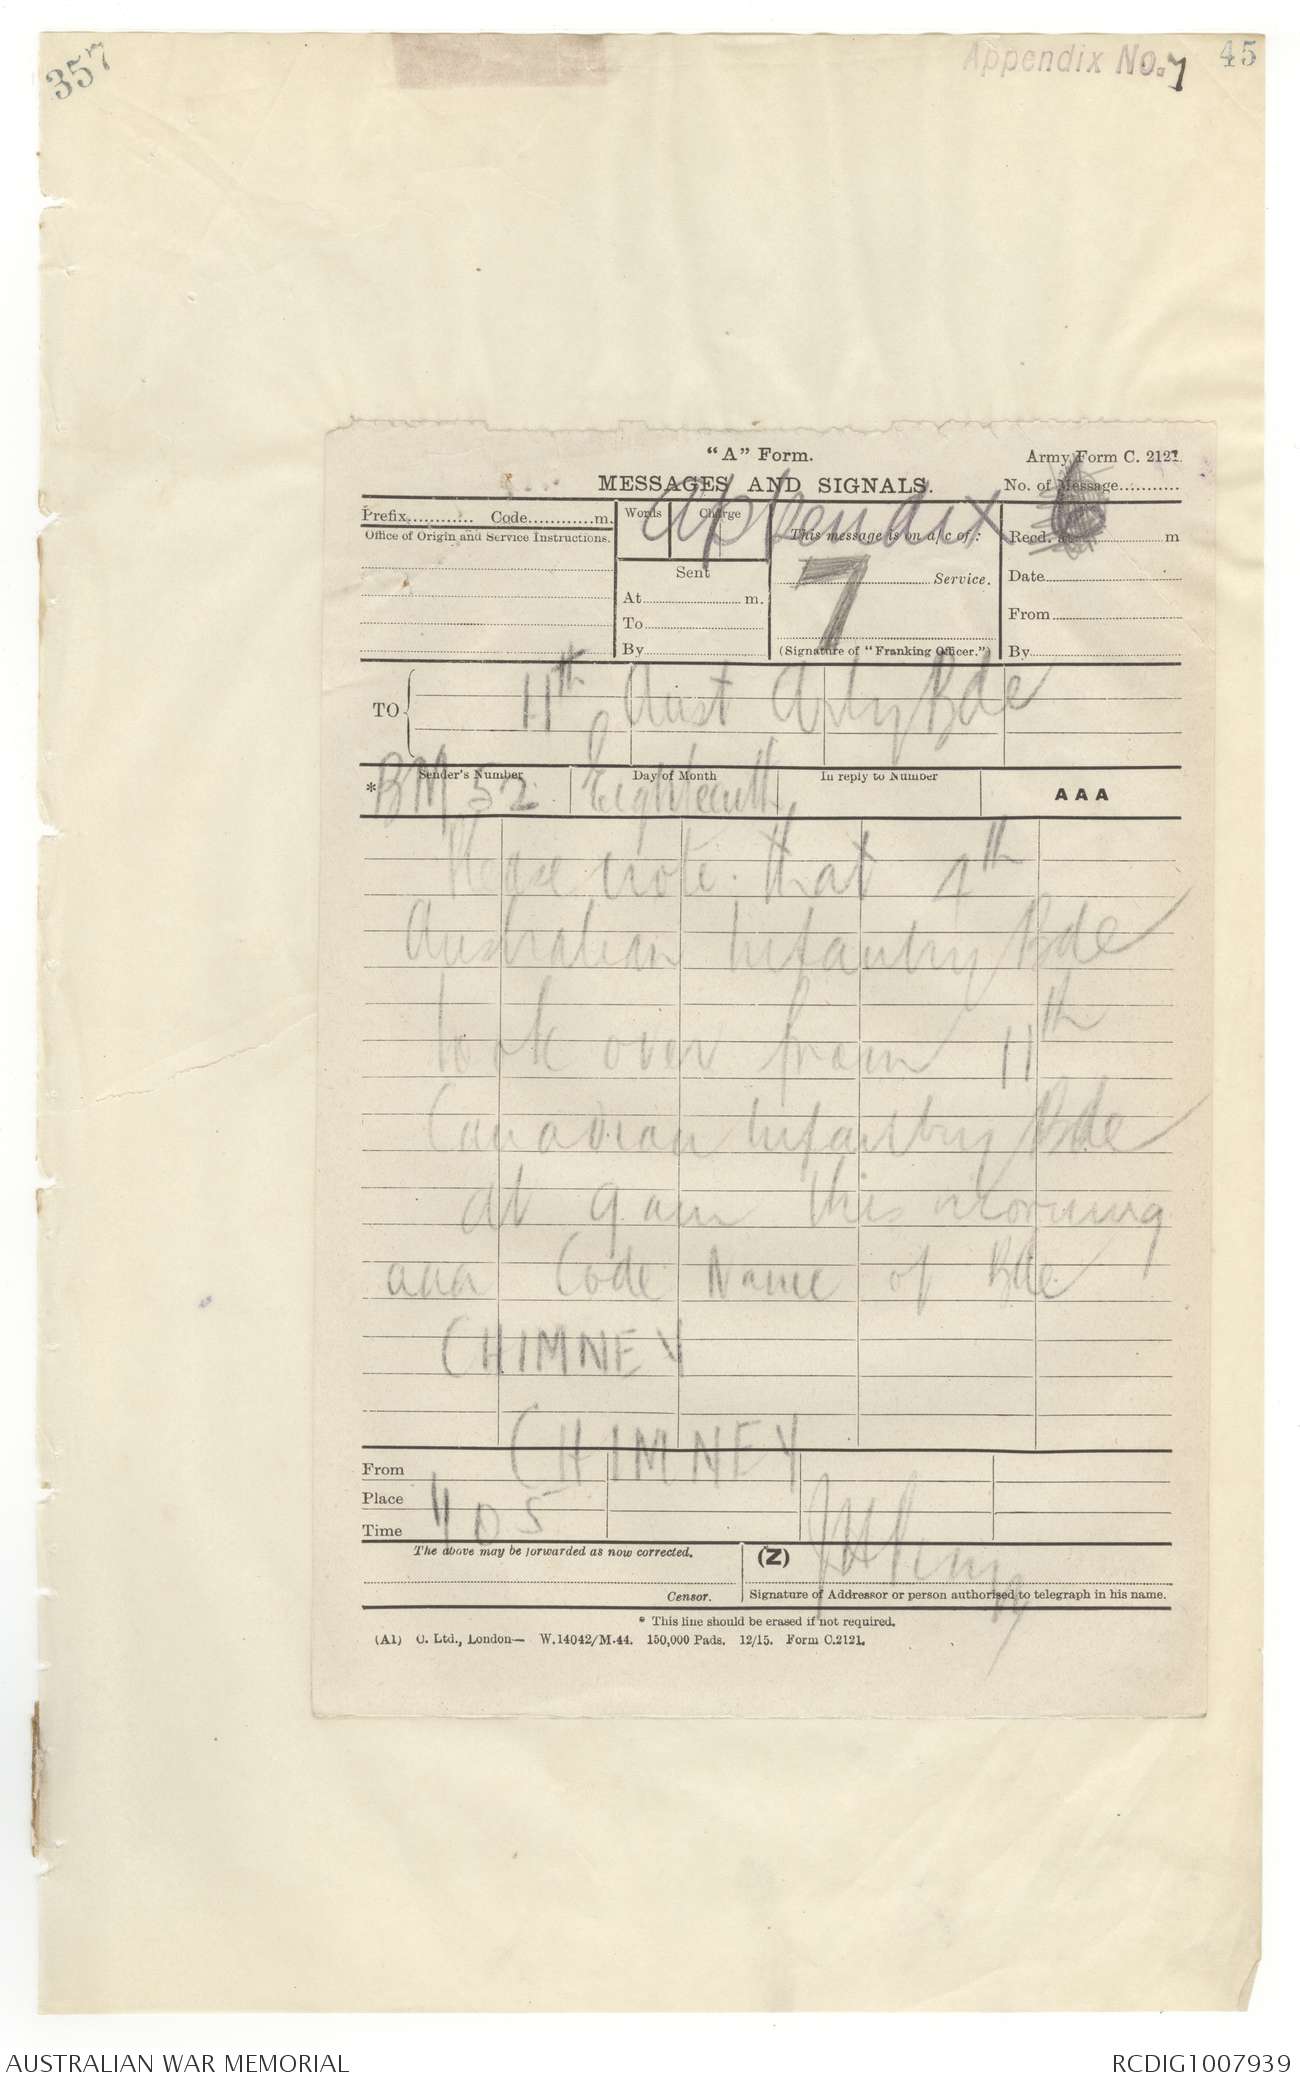 357
Appendix No. 7
45
"A" Form.
Army Form C. 2121.
MESSAGES AND SIGNALS.
No. of Message...........
Appendix
7
Prefix............ Code............m.
Words Charge
This message is on a/c of :
Recd. at....................m
Office of Origin and Service Instructions.
Sent
....................Service.
Date....................
At....................m.
From....................
To....................
By....................
(Signature of "Franking Officer.")
By....................
TO
11th Aust Arty Bde
Sender's Number
Day of Month
In reply to Number
AAA
* BM 52 Eighteenth
Please note that 4th
Australian Infantry Bde
took over from 11th
Canadian Infantry Bde
at 9 am this morning
aaa Code Name of Bde
CHIMNEY
From CHIMNEY
Place
Time 1105
The above may be forwarded as now corrected.
(Z)
Censor.
Signature of Addressor or person authorised to telegraph in his name.
* This line should be erased if not required.
(A1) C. Ltd., London— W.14042/M.44. 150,000 Pads. 12/15. Form C.2121.
AUSTRALIAN WAR MEMORIAL
RCDIG1007939